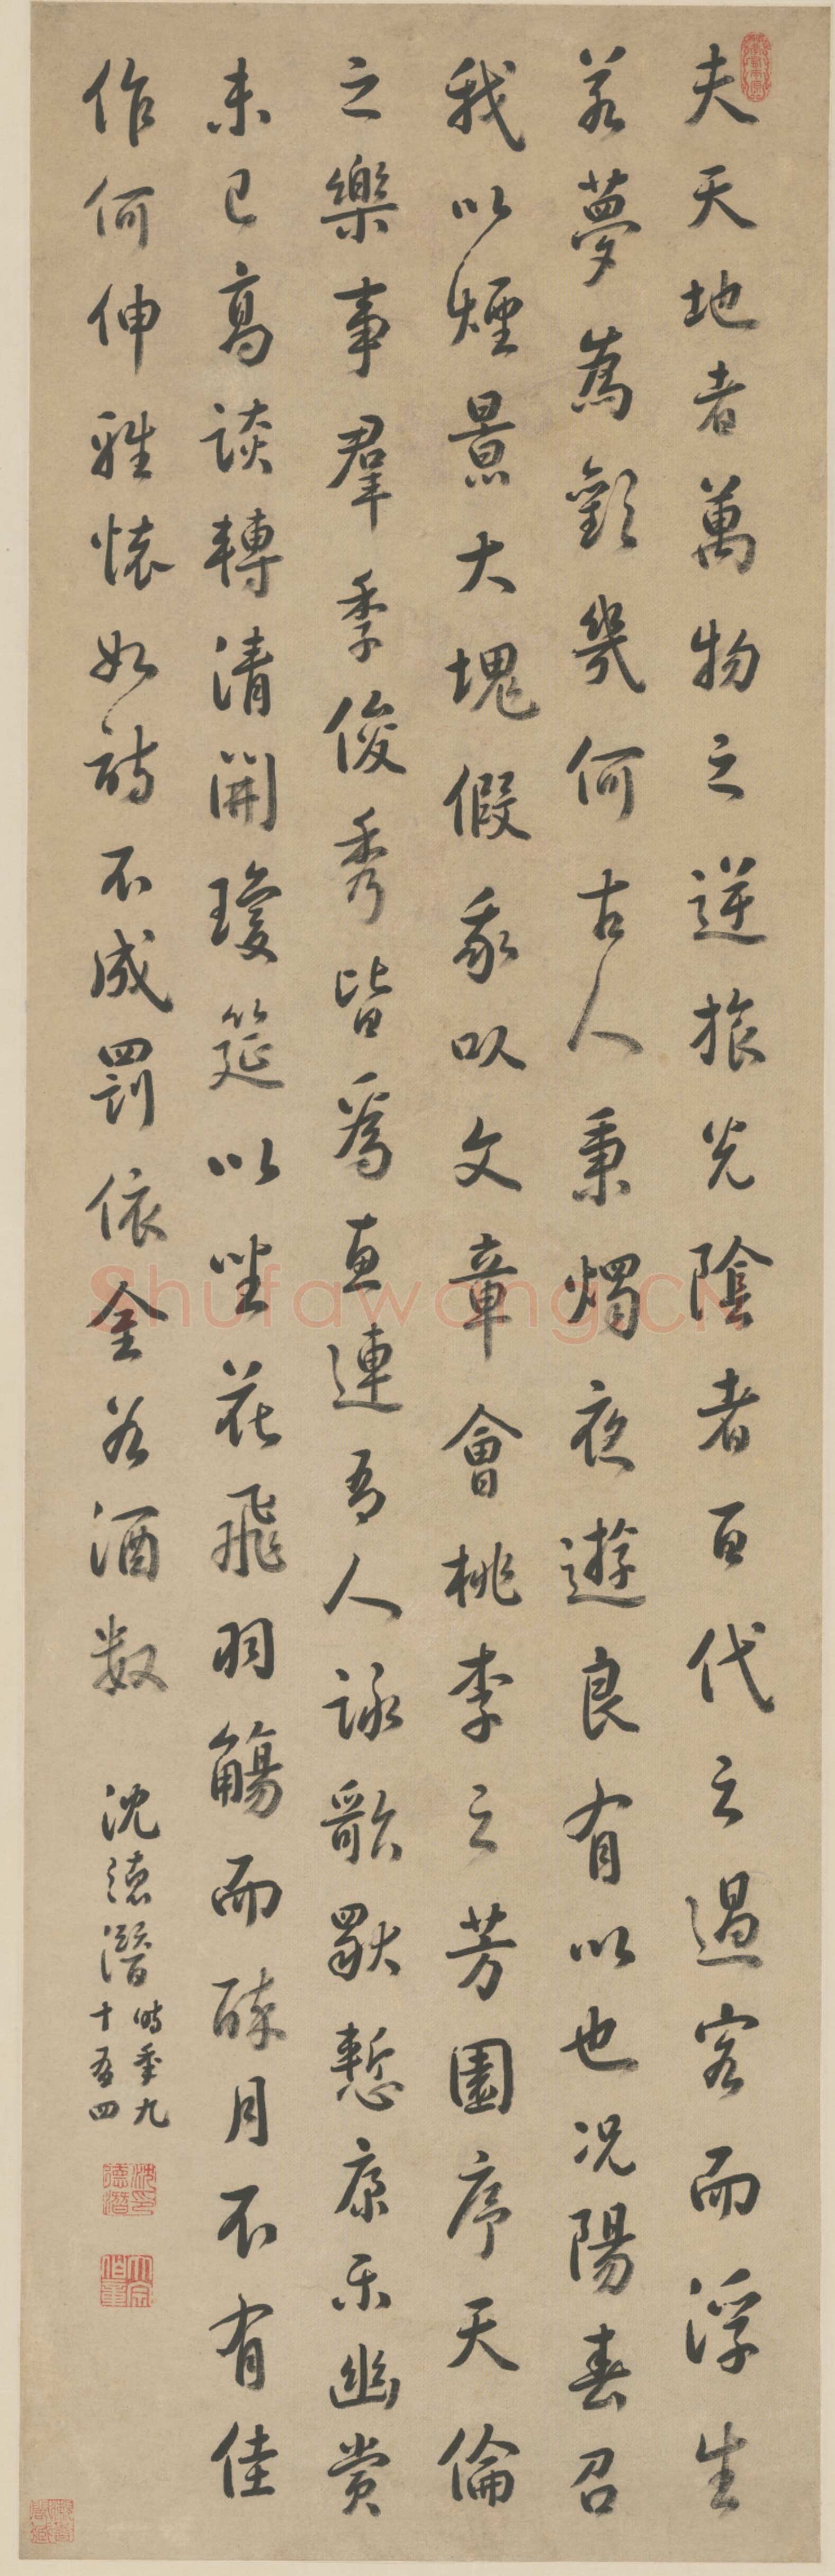 夫天地者萬物之逆旅光陰者百代之過客而浮生
若夢為歡幾何古人秉燭夜遊良有以也況陽春召
我以煙景大塊假我以文章會桃李之芳園序天倫
之樂事羣季俊秀皆為惠連吾人詠歌獨慙康樂幽賞
未已高談轉清開瓊筵以坐花飛羽觴而醉月不有佳
作何伸雅懷如詩不成罰依金谷酒數
沈德潛
時年九
十有四
沈德潛印
Shufawang.CN